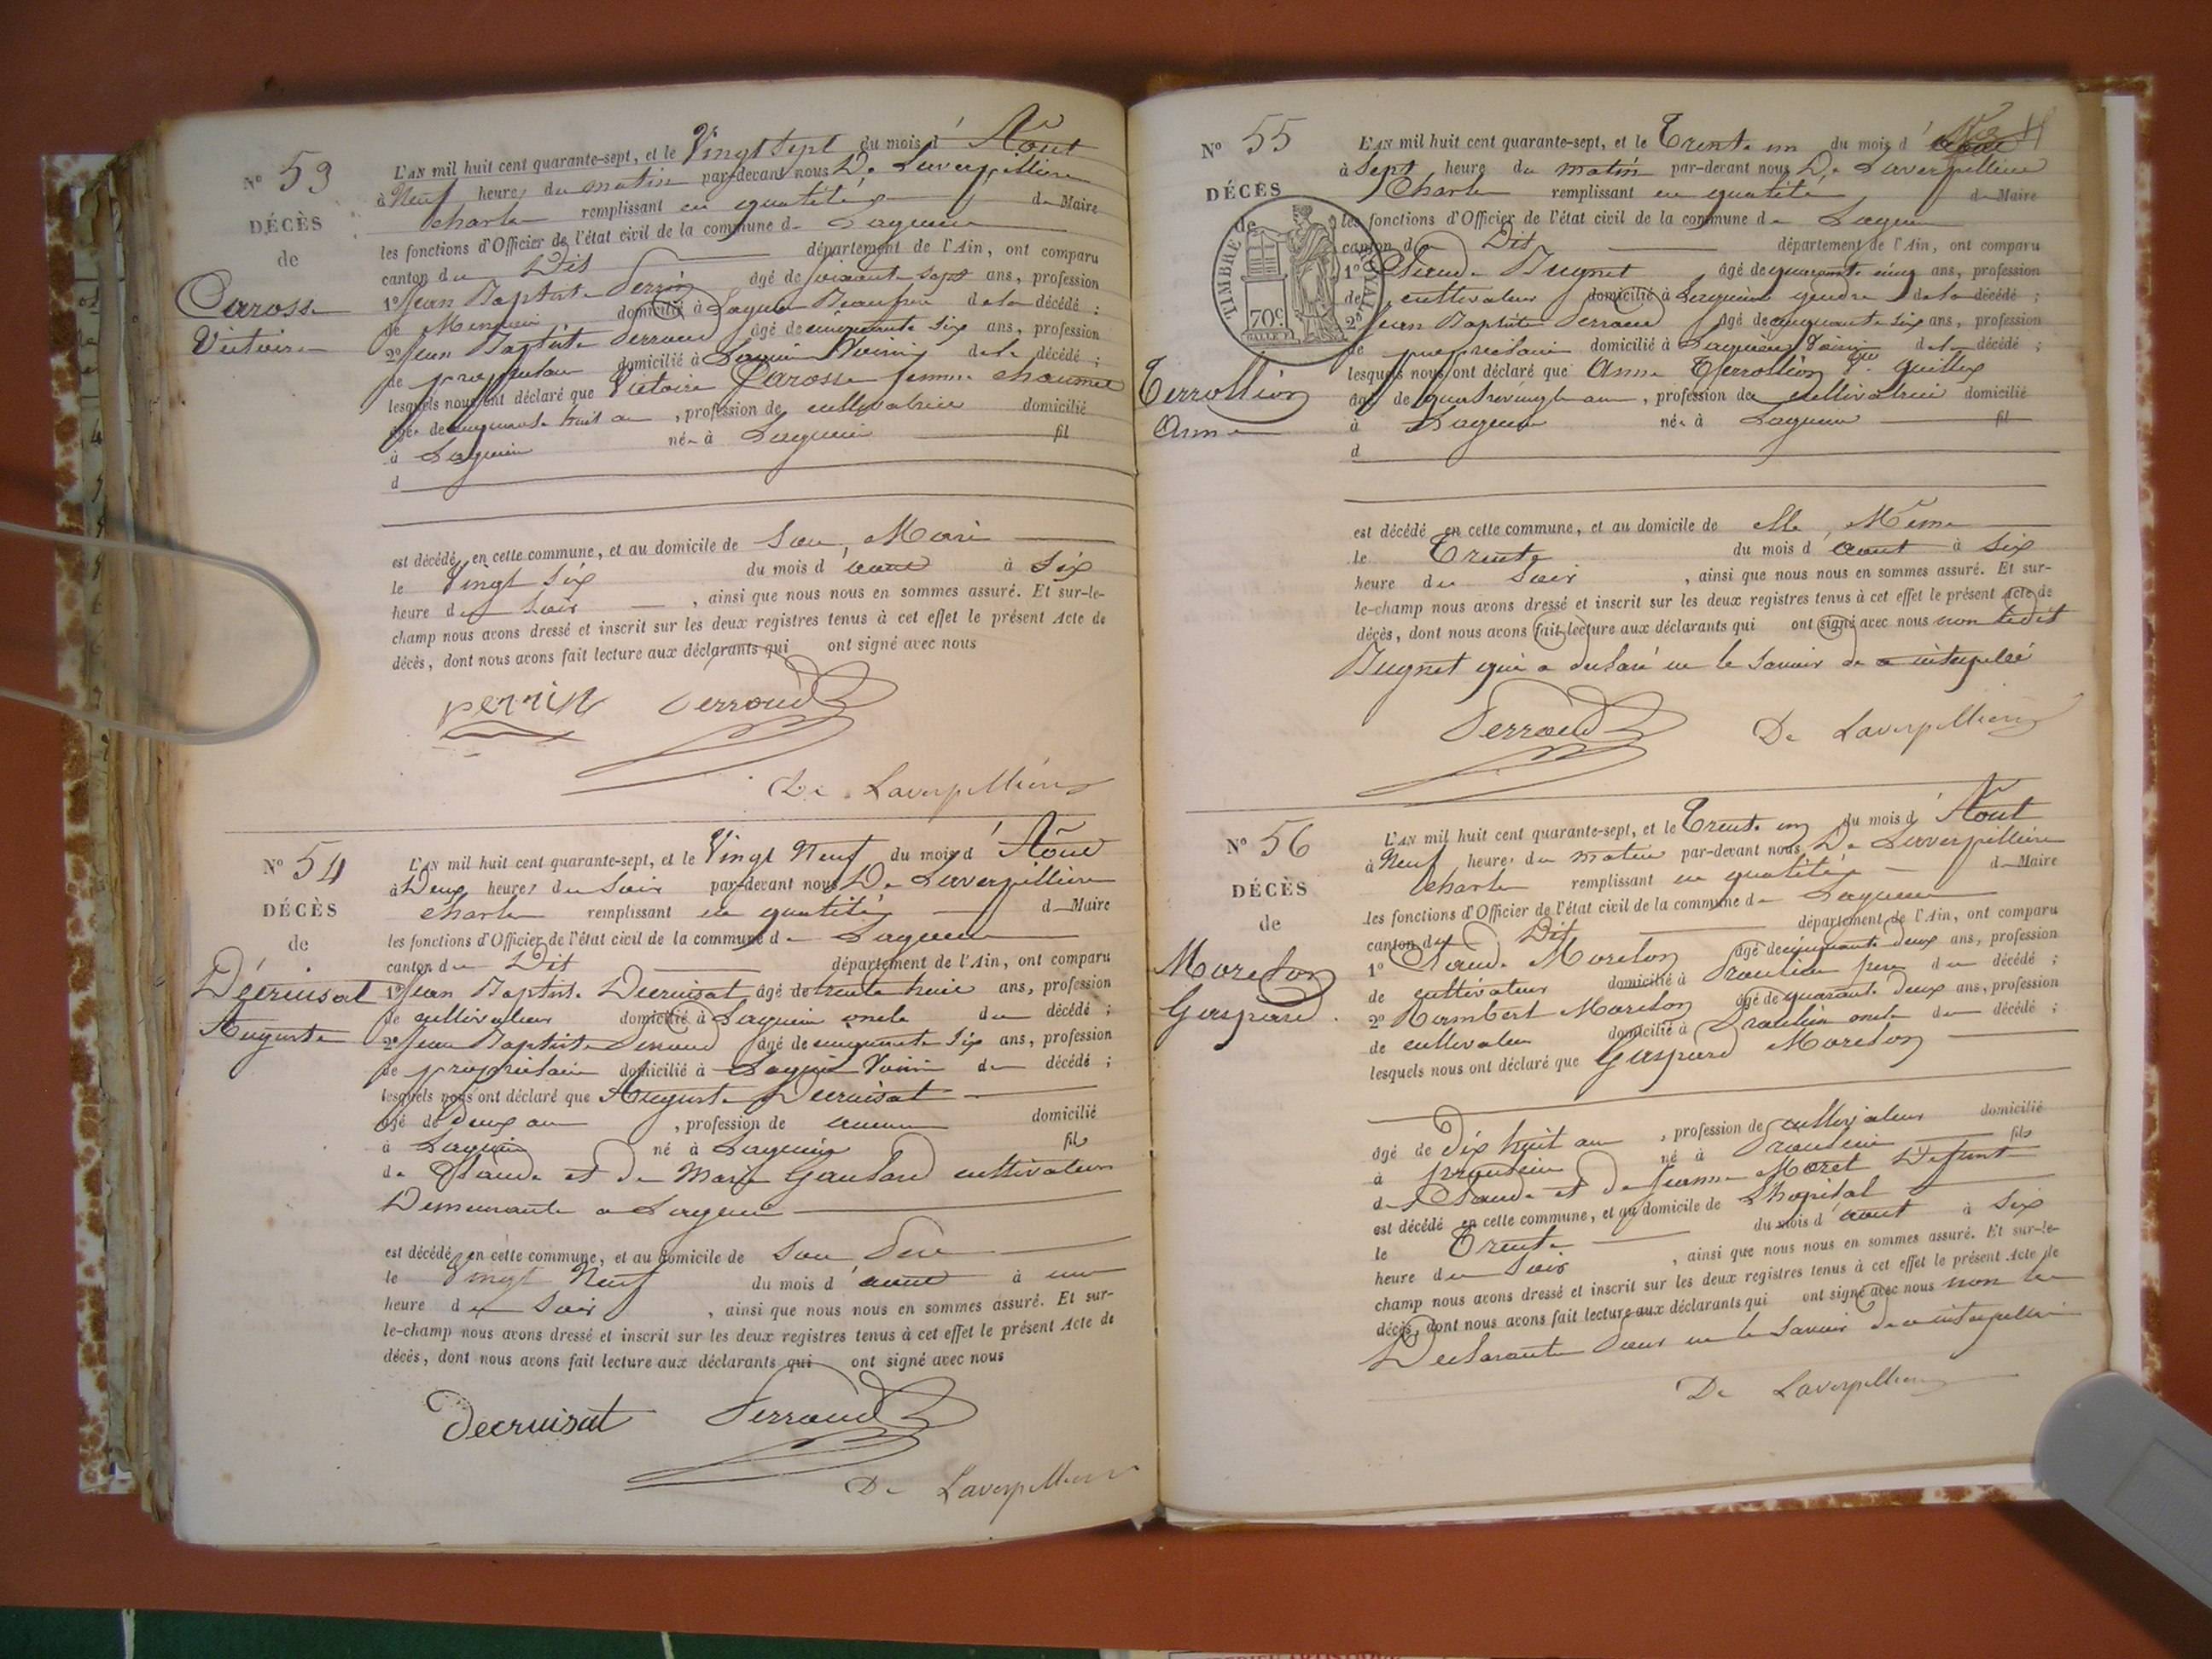 N° 53
DÉCÈS
de
Carosse
Victoire
L'AN mil huit cent quarante-sept, et le Vingt Sept du mois d'Aout
à Neuf heures du matin par-devant nous De Laverpillière
Charles remplissant en qualité de Maire
les fonctions d'Officier de l'état civil de la commune de Lagnieu
canton du Dit département de l'Ain, ont comparu
1° Jean Baptiste Perrin âgé de soixante sept ans, profession
de domicilié à Lagnieu Beaufrère de la décédé ;
2° Jean Baptiste Perroud âgé de cinquante six ans, profession
de propriétaire domicilié à Lagnieu Voisin de la décédé ;
lesquels nous ont déclaré que Victoire Carosse femme Chaumet
âgée de cinquante huit ans, profession de cultivatrice domicilié
à Lagnieu née à Lagnieu fil
d
est décédé en cette commune, et au domicile de Son Mari
le Vingt Six du mois d'aout à Six
heure du Soir , ainsi que nous nous en sommes assuré. Et sur-le-
champ nous avons dressé et inscrit sur les deux registres tenus à cet effet le présent Acte de
décès, dont nous avons fait lecture aux déclarants qui ont signé avec nous
perrin Perroud
De Laverpillière
N° 54
DÉCÈS
de
Décruisat
Auguste
L'AN mil huit cent quarante-sept, et le Vingt Neuf du mois d'Aout
à Deux heures du Soir par-devant nous De Laverpillière
Charles remplissant en qualité de Maire
les fonctions d'Officier de l'état civil de la commune de Lagnieu
canton du Dit département de l'Ain, ont comparu
1° Jean Baptiste Decruisat âgé de trente huit ans, profession
de cultivateur domicilié à Lagnieu oncle du décédé ;
2° Jean Baptiste Perroud âgé de cinquante Six ans, profession
de propriétaire domicilié à Lagnieu Voisin du décédé ;
lesquels nous ont déclaré que Auguste Decruisat
âgé de Deux ans , profession de aucune domicilié
à Lagnieu né à Lagnieu fils
de Claude et de Marie Gaulard cultivateurs
Demeurants a Lagnieu
est décédé en cette commune, et au domicile de Son Père
le Vingt Neuf du mois d'aout à une
heure du Soir , ainsi que nous nous en sommes assuré. Et sur-
le-champ nous avons dressé et inscrit sur les deux registres tenus à cet effet le présent Acte de
décès, dont nous avons fait lecture aux déclarants qui ont signé avec nous
Decruisat Perroud
De Laverpillière
N° 55
DÉCÈS
de
TIMBRE ROYAL
70c
Terrollion
Anne
L'AN mil huit cent quarante-sept, et le Trente un du mois d'aout
à Sept heure du matin par-devant nous De Laverpillière
Charles remplissant en qualité de Maire
les fonctions d'Officier de l'état civil de la commune de Lagnieu
canton du Dit département de l'Ain, ont comparu
1° Claude Bugnet âgé de quarante cinq ans, profession
de cultivateur domicilié à Lagnieu gendre de la décédé ;
2° Jean Baptiste Perroud âgé de cinquante six ans, profession
de propriétaire domicilié à Lagnieu Voisin de la décédé ;
lesquels nous ont déclaré que Anne Terrollion
âgé de quatrevingts ans , profession de cultivatrice domicilié
à Lagnieu née à Lagnieu fil
d
est décédé en cette commune, et au domicile de elle Même
le Trente du mois d'aout à six
heure du Soir , ainsi que nous nous en sommes assuré. Et sur-
le-champ nous avons dressé et inscrit sur les deux registres tenus à cet effet le présent Acte de
décès, dont nous avons fait lecture aux déclarants qui ont signé avec nous non ledit
Bugnet qui a déclaré ne le savoir de ce interpellé
Perroud De Laverpillière
N° 56
DÉCÈS
de
Morelon
Gaspard
L'AN mil huit cent quarante-sept, et le Trente un du mois d'Aout
à Neuf heures du matin par-devant nous De Laverpillière
Charles remplissant en qualité de Maire
les fonctions d'Officier de l'état civil de la commune de Lagnieu
canton du Dit département de l'Ain, ont comparu
1° Claude Morelon âgé de cinquante deux ans, profession
de cultivateur domicilié à Proulieu père du décédé ;
2° Rambert Morelon âgé de quarante deux ans, profession
de cultivateur domicilié à Proulieu oncle du décédé ;
lesquels nous ont déclaré que Gaspard Morelon
âgé de Dix huit ans , profession de cultivateur domicilié
à Proulieu né à Proulieu fils
de Claude et de Jeanne Moret Défunte
est décédé en cette commune, et au domicile de L'hopital
le Trente du mois d'aout à Six
heure du Soir , ainsi que nous nous en sommes assuré. Et sur-le-
champ nous avons dressé et inscrit sur les deux registres tenus à cet effet le présent Acte de
décès, dont nous avons fait lecture aux déclarants qui ont signé avec nous non les
Déclarants pour ne le savoir de ce interpellés
De Laverpillière